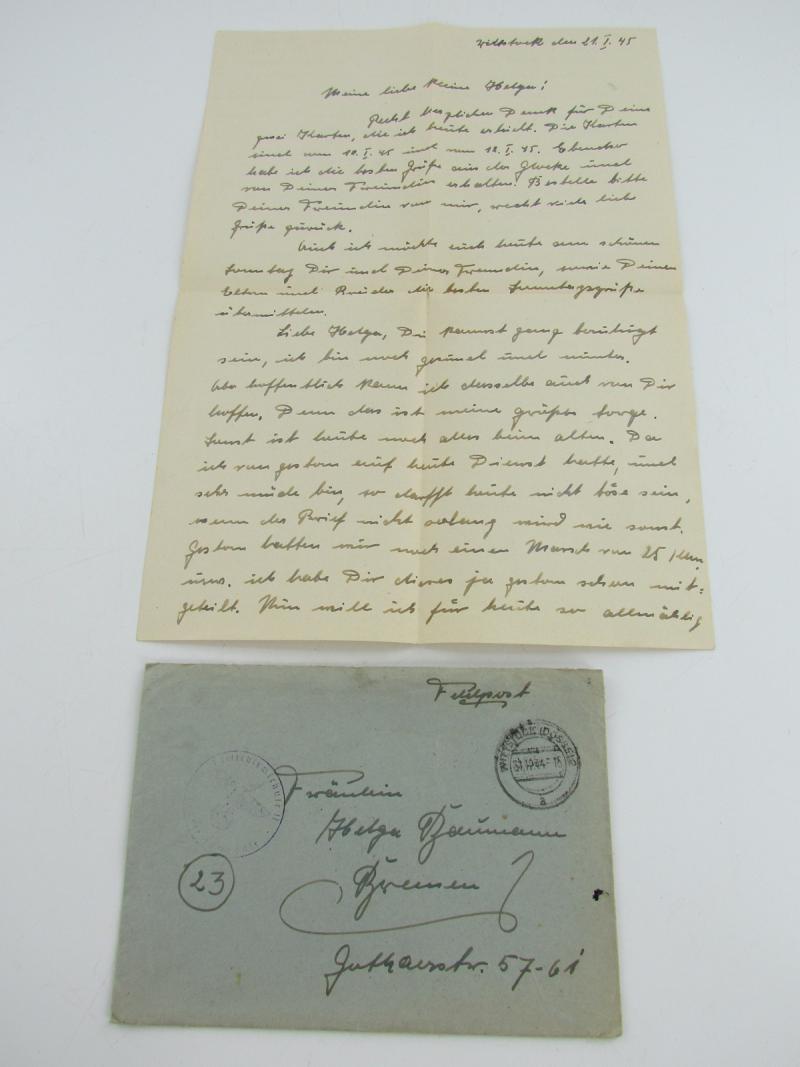 Wittstock den 21.I.45
Meine liebe kleine Helga!
Recht herzlichen Dank für Deine
zwei Karten, die ich heute erhielt. Die Karten
sind vom 10.I.45 und vom 12.I.45. Ebenso
habe ich die besten Grüße aus der Glocke und
von Deiner Freundin erhalten. Bestelle bitte
Deiner Freundin von mir, recht viele liebe
Grüße zurück.
Auch ich möchte euch heute am schönen
Sonntag Dir und Deiner Freundin, sowie Deinen
Eltern und Bruder die besten Sonntagsgrüße
übermitteln.
Liebe Helga, Du kannst ganz beruhigt
sein, ich bin noch gesund und munter.
Aber hoffentlich kann ich dasselbe auch von Dir
hoffen. Denn das ist meine größte Sorge.
Sonst ist heute noch alles beim alten. Da
ich von gestern auf heute Dienst hatte, und
sehr müde bin, so darfst heute nicht böse sein,
wenn der Brief nicht solang wird wie sonst.
Gestern hatten wir noch einen Marsch von 25 Klm,
usw. ich habe Dir dieses ja gestern schon mit=
geteilt. Nun will ich für heute so allmählig
Feldpost
WITTSTOCK (DOSSE)
a
Fräulein
Helga Baumann
23
Bremen
Gothaerstr. 57-61